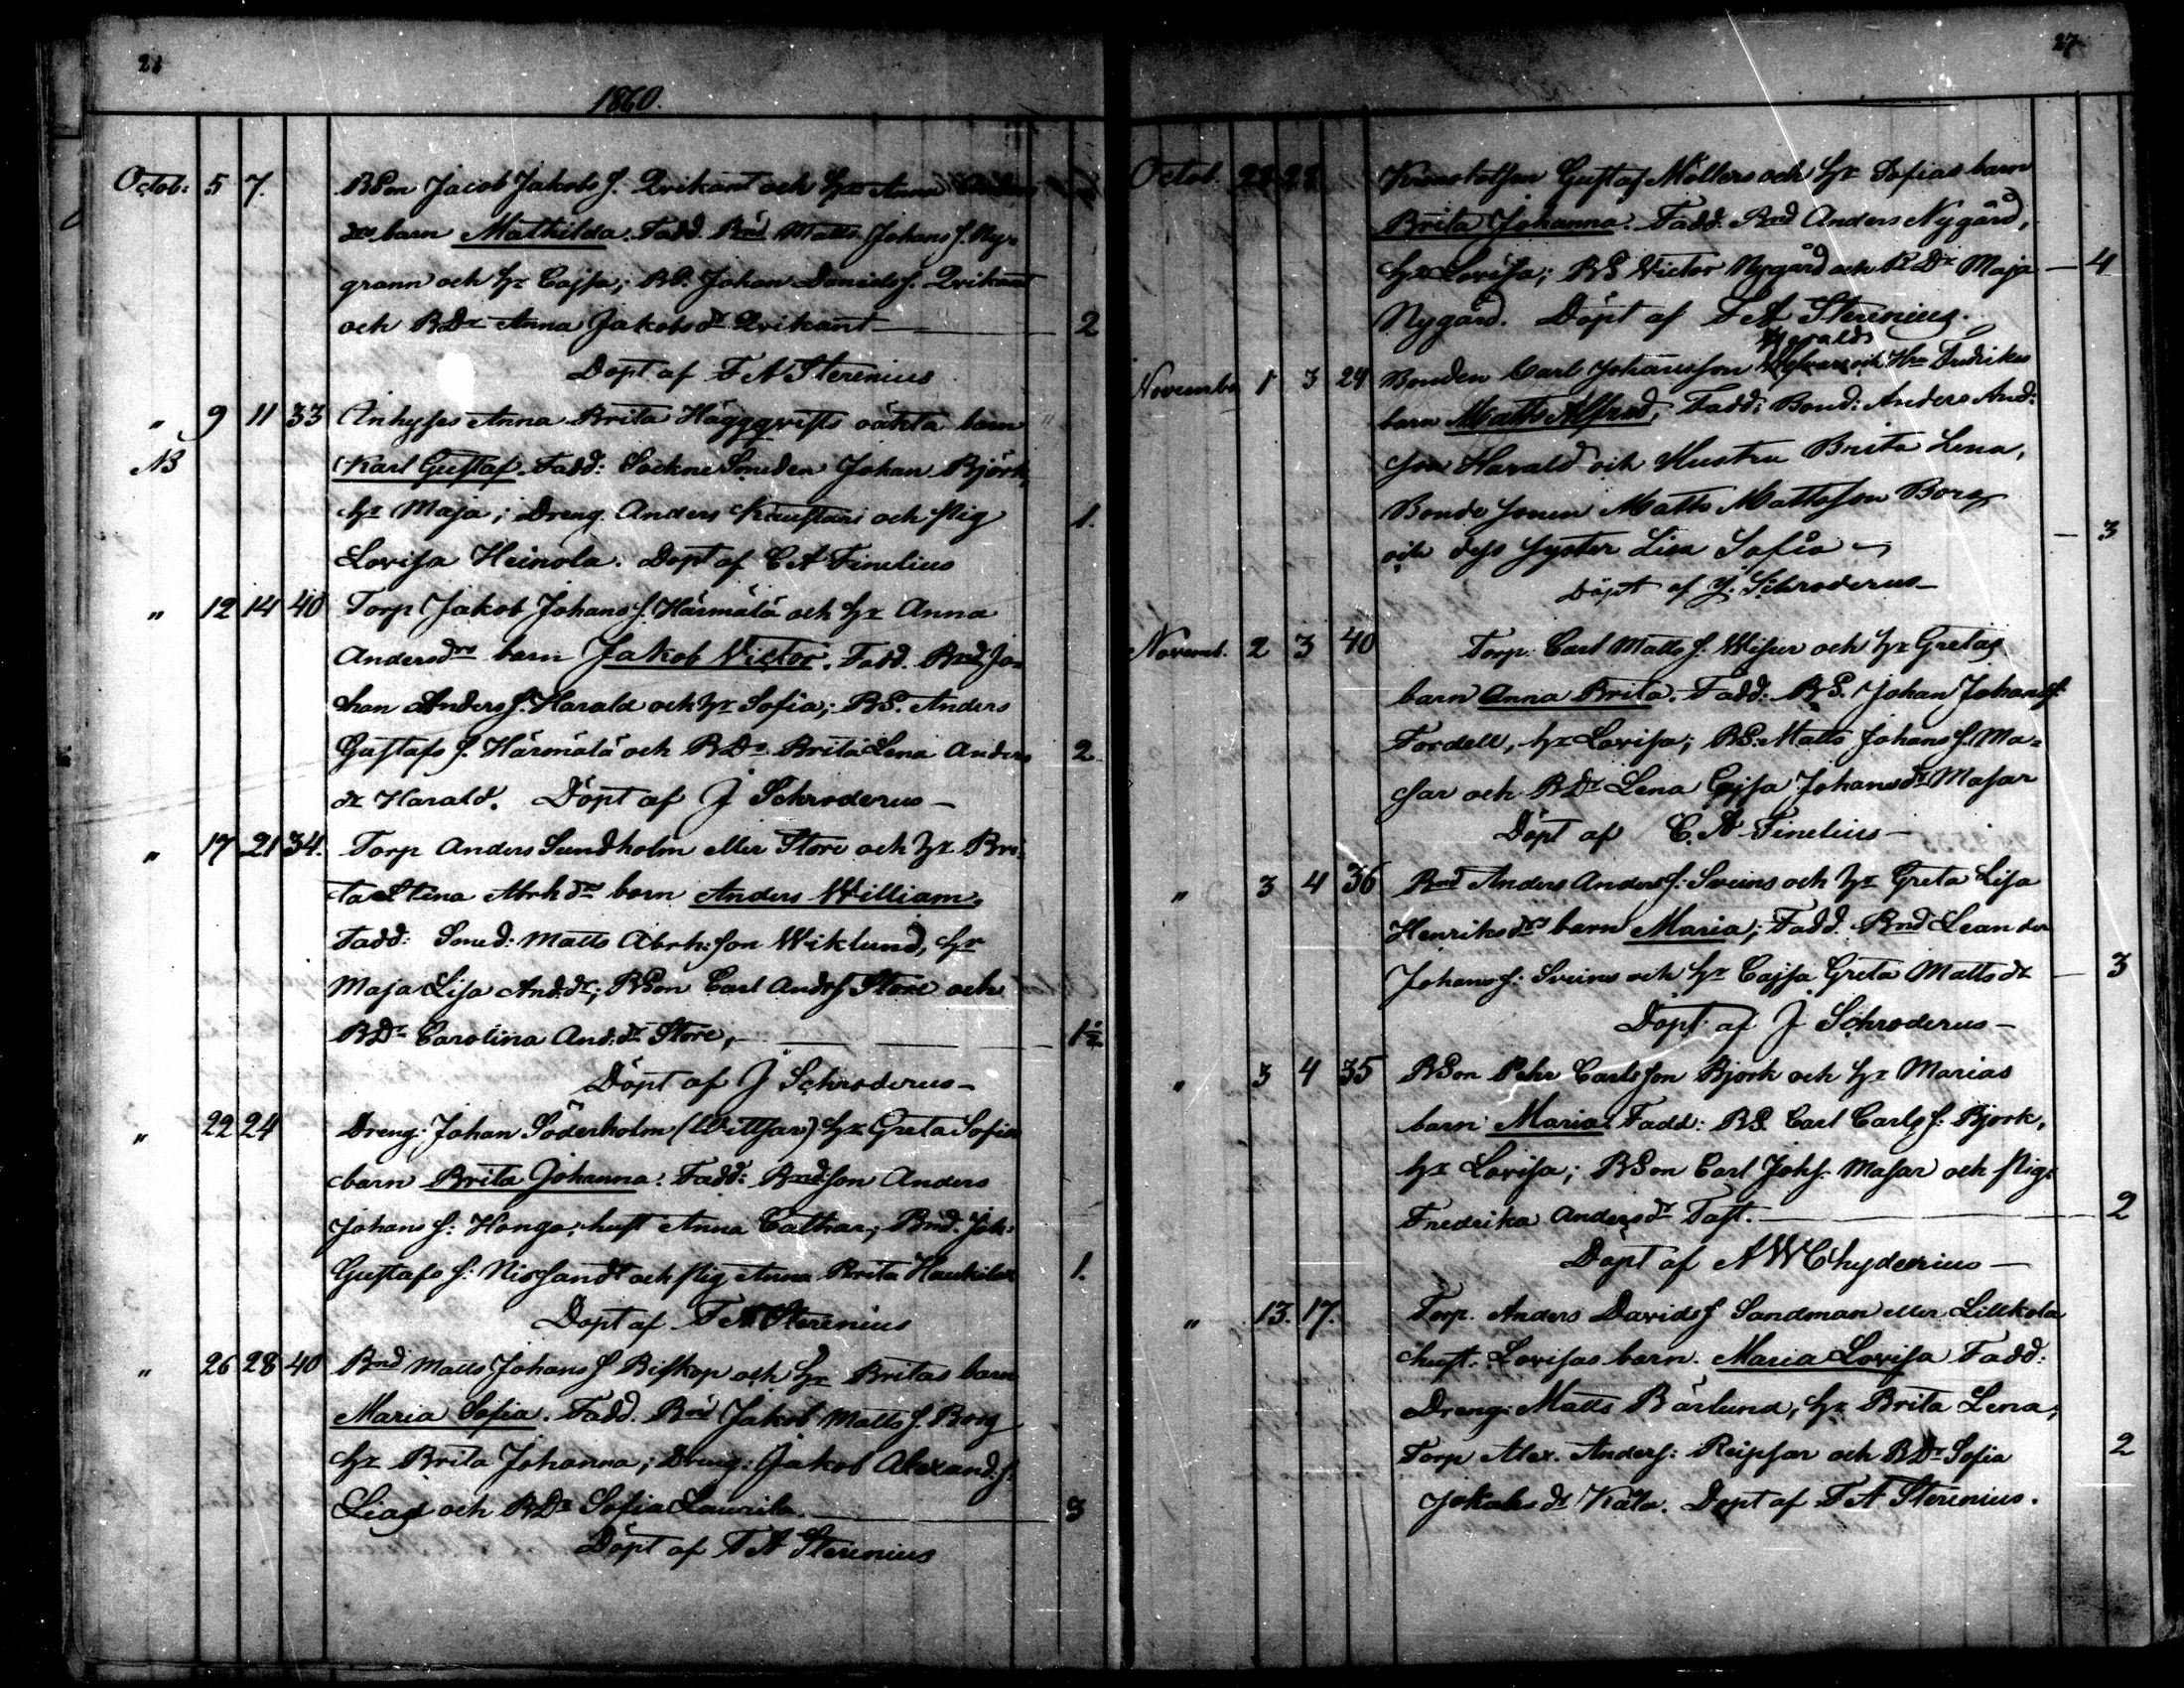 1860.
Octob: 5 7. BSon Jacob Jakobs s. Qvikant och hr Anna
drs barn Mathilda. Fadd. Bnd Matts Johans s. Ny-
grann och hr Cajsa; BS. Johan Daniels s. Qvikant
och BDr Anna Jakobs dr Qvikant — 2
Döpt af F A Sterenius
" 9 11 33 Inhyses Anna Brita Häggqvists oäkta barn
NB Karl Gustaf. Fadd: Sockne Smeden Johan Björk,
hr Maja; Dreng Anders Knustari och Pig 1.
Lovisa Heinola. Döpt af C A Finelius
" 12 14 40 Torp Jakob Johans s. Härmälä och hr Anna
Andersdrs barn Jakob Victor. Fadd. Bnd Jo-
han Anders s. Harald och hr Sofia; BS. Anders
Gustafs s. Härmälä och BDr Brita Lena Anders 2
dr Harald. Döpt af J Schroderus —
" 17 21 34. Torp Anders Sundholm eller Store och hr Bri-
ta Stina Abrh drs barn Anders William,
Fadd: Smed: Matts Abrh: son Wiklund, hr
Maja Lisa And. dr; BSon Carl And s. Store och
BDr Carolina And: dr Store, — 1½
Döpt af J Schroderus —
" 22 24 Dreng: Johan Söderholm (Wittsar) hr Greta Sofias
barn Brita Johanna. Fadd: Bnd: son Anders
Johans s: Hongo, hust Anna Cathar; Bnd. Joh:
Gustafs s: Nissand och Pig Anna Brita Haukilax 1.
Döpt af F A Sterenius
" 26 28 40 Bnd Matts Johans s Biskop och hr Britas barn
Maria Sofia. Fadd. Bnd Jakob Matts s. Borg
hr Brita Johanna; Dreng: Jakob Alexand. s:
Lias och BDr Sofia Laurila. — 3
Döpt af F A Sterenius
27
Octob. Gustaf Möllers och hr Sofias barn
Brita Johanna. Fadd. Bnd Anders Nygård,
hr Lovisa; BS Victor Nygård och BDr Maja — 4
Nygård. Döpt af F A Sterenius.
Haralds
November 1 3 24 Bonden Carl Johansson och Hu Fredrikas
barn Matts Alfred, Fadd: Bond: Anders And:
son Harald och Hustru Brita Lena,
Bonde sonen Matts Mattsson Borg
och dess syster Lisa Sofia — 3
Döpt af J. Schroderus —
Novemb. 2 3 40 Torp. Carl Matts s. Wisur och hr Gretas
barn Anna Brita. Fadd: BS. Johan Johans s:
Fordell, hr Lovisa; BS: Matts Johans s. Ma-
sar och BDr Lena Cajsa Johans dr Masar
Döpt af C. A Finelius —
" 3 4 36 Bnd Anders Anders s: Sveins och hr Greta Lisa
Henriks drs barn Maria; Fadd. Bnd Leander
Johans s: Sveins och hr Cajsa Greta Matts dr — 3
Döpt af J Schroderus —
" 3 4 35 BSon Pehr Carlsson Björk och hr Marias
barn Maria. Fadd: BS. Carl Carls s: Björk,
hr Lovisa; BSon Carl Joh s. Masar och Pig:
Fredrika Anders dr Tast. — 2
Döpt af A W Chydenius —
" 13. 17. Torp. Anders Davids s Sandman eller Lillkola
hust. Lovisas barn. Maria Lovisa Fadd:
Dreng: Matts Bärlund, hr Brita Lena;
Torp Alex. Anders: Reipsar och BDr Sofia 2
Jakobs dr Käla. Döpt af F A Sterenius.